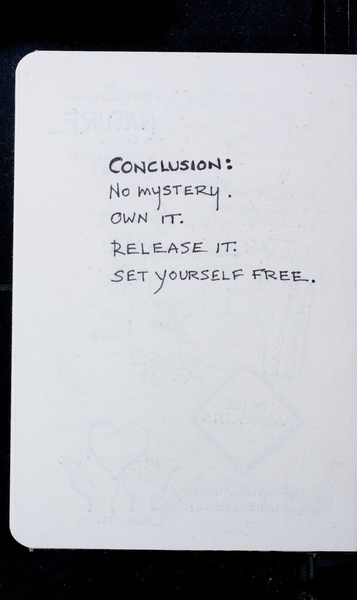 CONCLUSION:
NO MYSTERY.
OWN IT.
RELEASE IT.
SET YOURSELF FREE.